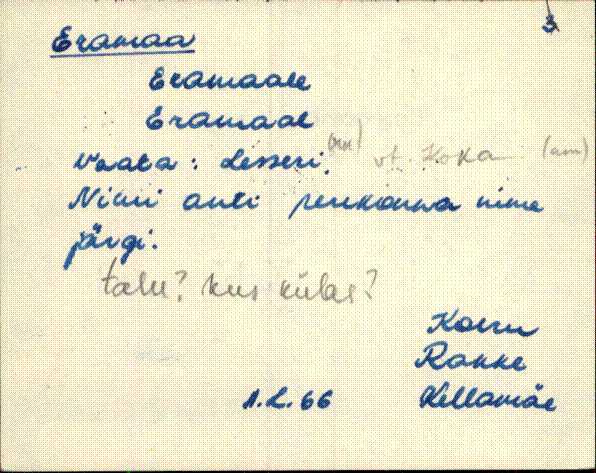 3
Eramaa
Eramaale
Eramaal
Vaata: Lesseri. (am) vt. Koka (am)
Nimi anti perekonna nime
järgi.
talu? kus külas?
Koeru
Rakke
1.L.66 Kellamäe